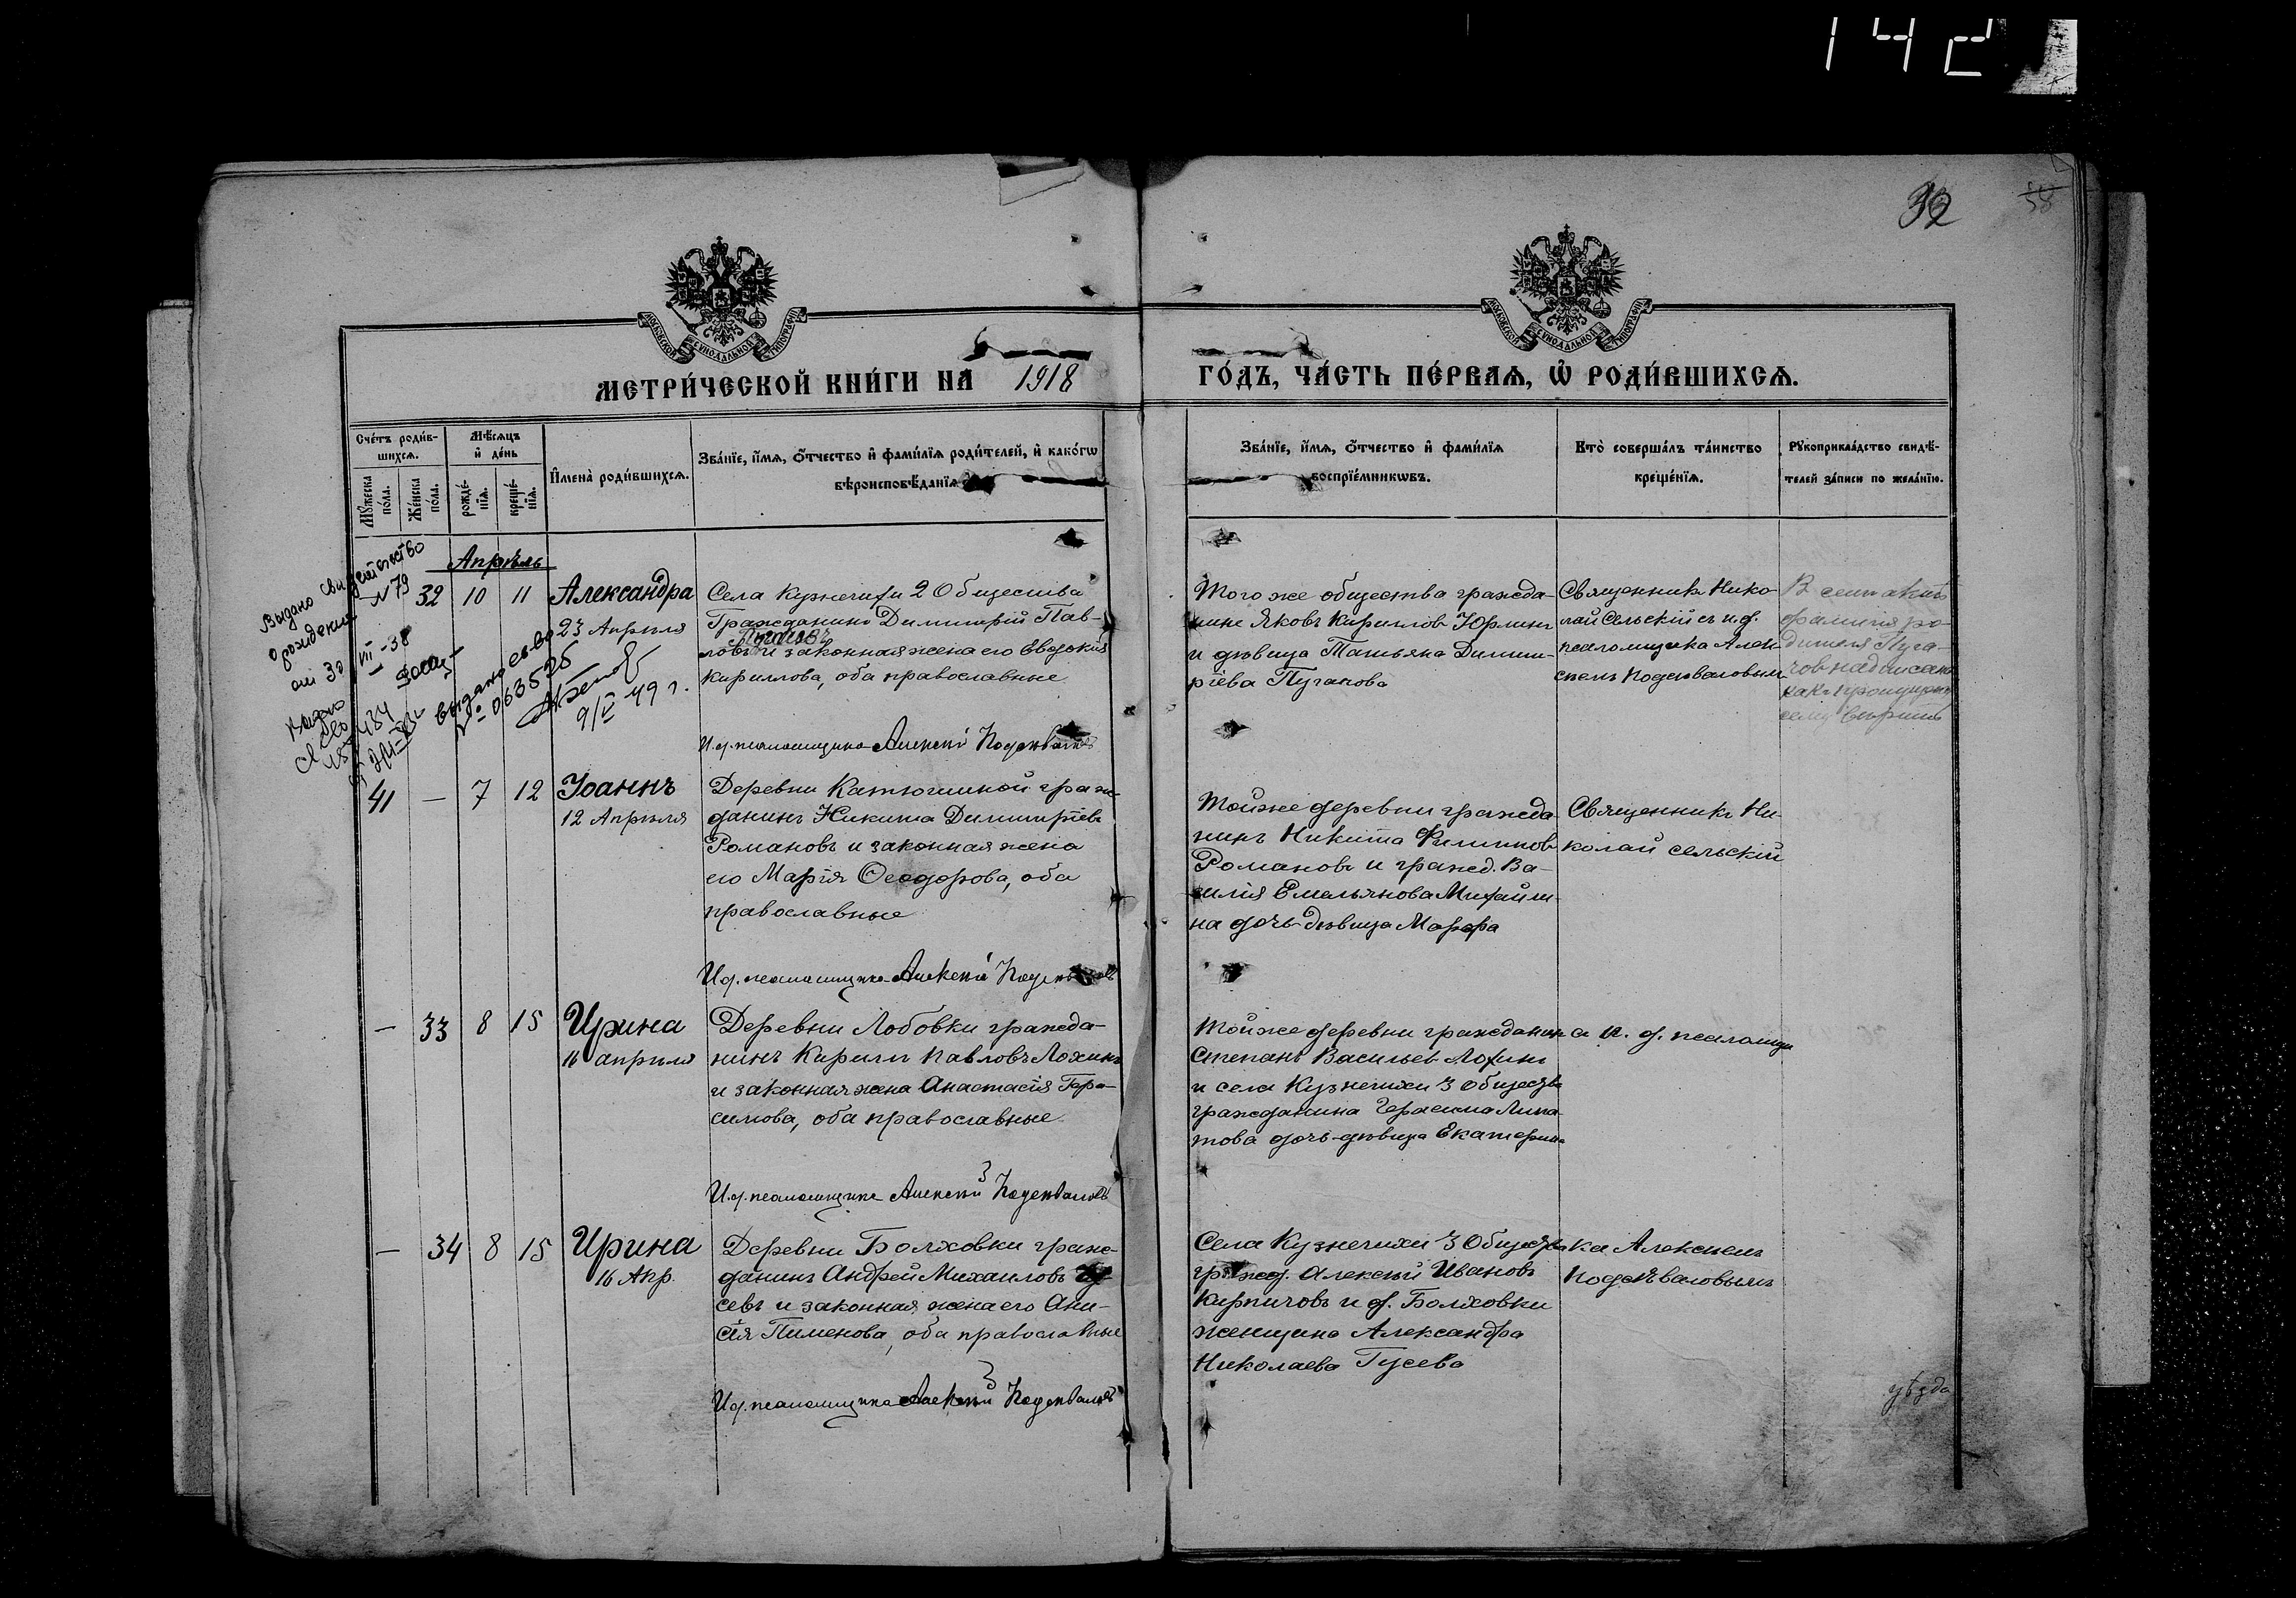 142
32
58
МОСКОВСКОЙ СУНОДАЛЬНОЙ ТИПОГРАФІИ
МОСКОВСКОЙ СУНОДАЛЬНОЙ ТИПОГРАФІИ
МЕТРИ́ЧЕСКОЙ КНИ́ГИ НА 1918
ГО́ДЪ, ЧА́СТЬ ПЕ́РВАЯ, Ѽ РОДИ́ВШИХСЯ.
Сче́тъ роди́в-
шихся.
Мꙋжеска по́ла.
Же́нска по́ла.
Мѣ́сяцъ
и҆ де́нь
рожде́-
нїя.
креще́-
нїя.
И҆мена̀ роди́вшихся.
Зва́нїе, и҆́мя, ѻ҆́тчество и҆ фами́лїя роди́телей, и҆ како́гѡ
вѣроисповѣ́данїя
Зва́нїе, и҆́мя, ѻ҆́тчество и҆ фами́лїя
воспрїе́мникѡвъ.
Кто̀ соверша́лъ та́инство
креще́нїя.
Рꙋкоприкла́дство свидѣ́-
телей за́писи по жела́нїю.
Выдано свидетельство
о рождении N 79
от 30/VII-38
выдано св-во
№ 063525
9/V 49 г.
Апрѣль
32 10 11 Александра
23 Апрѣля
Села Кузнечихи 2 Общества
Гражданинъ Димитрій Пав-
Пугачевъ
ловъ и законная жена его Евдокія
Кириллова, оба православные
И.д. псаломщика Алексѣй Подсѣваловъ
Того же общества гражда-
нинъ Яковъ Кириллов Юрлинъ
и дѣвица Татьяна Димит-
ріева Пугачова
Священникъ Нико-
лай Сельскій съ и.д.
псаломщика Алек-
сѣемъ Подсѣваловымъ
В сем актѣ
фамилія ро-
дителя Пуга-
чов надписано
41 — 7 12 Іоаннъ
12 Апрѣля
Деревни Катюшиной граж-
данинъ Никита Димитріевъ
Романовъ и законная жена
его Марія Ѳеодорова, оба
православные
И.д. псаломщика Алексѣй Подсѣваловъ
Той же деревни гражда-
нинъ Никита Филиппов
Романовъ и гражд. Ва-
силія Емельянова Михайли-
на дочь-дѣвица Марфа
Священникъ Ни-
колай Сельскій
— 33 8 15 Ирина
16 апрѣля
Деревни Лобовки гражда-
нинъ Кириллъ Павловъ Лохинъ
и законная жена Анастасія Гера-
симова, оба православные
И.д. псаломщика Алексѣй Подсѣваловъ
Той же деревни гражданинъ
Степанъ Васильев Лохинъ
и села Кузнечихи 3 Общества
гражданина Герасима Липа-
това дочь-дѣвица Екатерина
с и. д. псаломщи
— 34 8 15 Ирина
16 Апр.
Деревни Болховки граж-
данинъ Андрей Михаиловъ Гу-
севъ и законная жена его Ани-
сія Пименова, оба православные
И.д. псаломщика Алексѣй Подсѣваловъ
Села Кузнечихи 3 Общества
гражд. Алексѣй Ивановъ
Кирпичовъ и д. Болховки
женщина Александра
Николаева Гусева
ка Алексѣемъ
Подсѣваловымъ
уѣзда